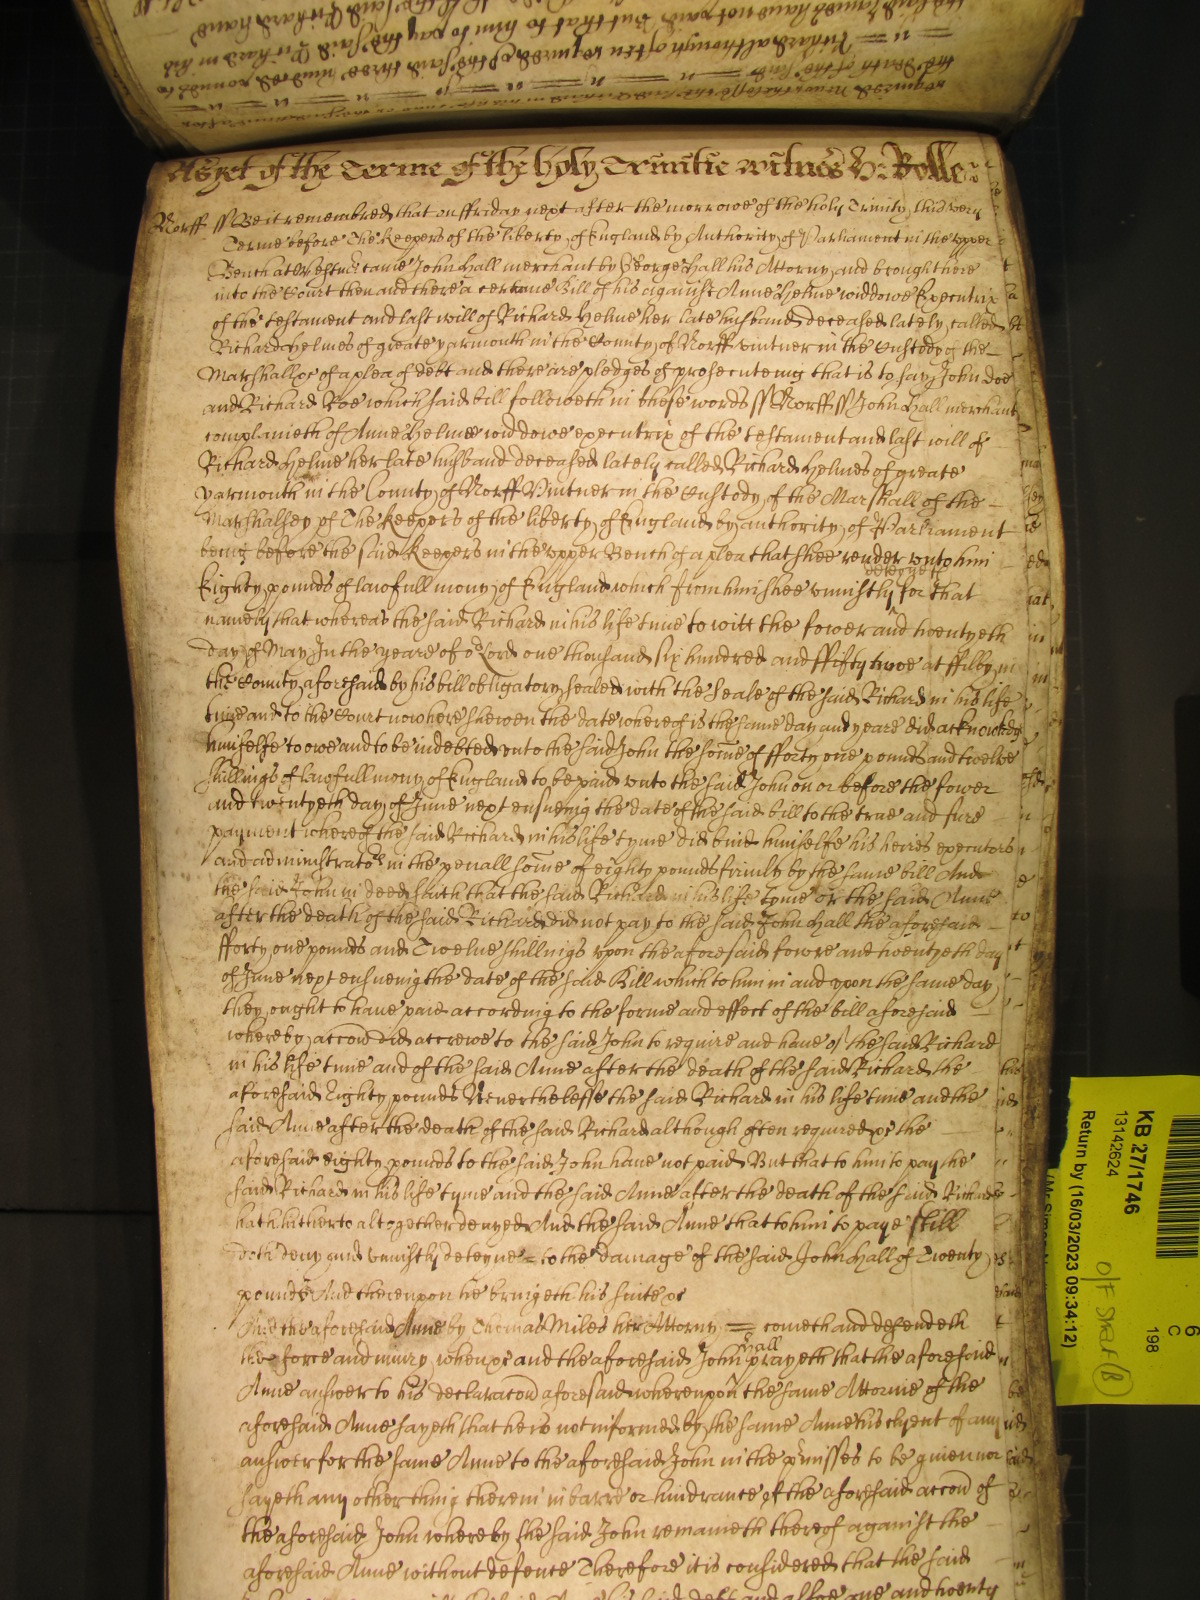 As yet of the Terme of the holy Trinitie witnes H: Rolle
Norff ss Be it remembred that on ffriday next after the morrowe of the holy Trinity this very
Terme before The Keepers of the liberty of England by Authority of Parliament in the vpper
Bench at Westmr came John Hall merchant by George Hall his Attorny and brought here
into the Court then and there a certaine Bill of his against Anne Helme widdowe Executrix
of the testament and last will of Richard Helme her late husband deceased lately called
Richard Helmes of greate yarmouth in the County of Norff vintner in the Custody of the
Marshall &c of a plea of debt and there are pledges of prosecuteing that is to say John doe
and Richard Roe which said bill followeth in these words ss Norff ss John Hall merchant
complaineth of Anne Helme widdowe executrix of the testament and last will of
Richard Helme her late husband deceased lately called Richard Helmes of greate
yarmouth in the County of Norff Vintner in the Custody of the Marshall of the
Marshalsey of The Keepers of the liberty of England by authority of Parliament
being before the said Keepers in the vpper Bench of a plea that shee render vnto him
Eighty pounds of lawfull mony of England which from him shee vniustly deteyneth for that
namely that whereas the said Richard in his life time to witt the fower and twentyeth
day of May In the yeare of or Lord one thousand six hundred and ffifty twoe at ffilby in
the County aforesaid by his bill obligatory sealed with the seale of the said Richard in his life
time and to the Court now here shewen the date whereof is the same day and yeare did acknowledge
himselfe to owe and to be indebted vnto the said John the some of fforty one pounds and twelve
shillings of lawfull mony of England to be paid vnto the said John on or before the fower
and twentyeth day of June next ensueing the date of the said bill to the true and sure
payment whereof the said Richard in his life tyme did bind himselfe his heires executors
and administrators in the penall some of eighty pounds firmly by the same bill And
the said John in deed saith that the said Richard in his life tyme or the said Anne
after the death of the said Richard did not pay to the said John Hall the aforesaid
fforty one pounds and Twelue shillings vpon the aforesaid fowre and twentyeth day
of June next ensueing the date of the said Bill which to him in and vpon the same day
they ought to haue paid according to the forme and effect of the bill aforesaid
whereby accon did accrewe to the said John to require and haue of the said Richard
in his life time and of the said Anne after the death of the said Richard the
aforesaid Eighty pounds Neuerthelesse the said Richard in his life time and the
said Anne after the death of the said Richard although often required &c the
aforesaid eighty pounds to the said John haue not paid But that to him to pay the
said Richard in his life tyme and the said Anne after the death of the said Richard
hath hitherto altogether denyed And the said Anne that to him to paye still
doth deny and vniustly deteyne to the damage of the said John Hall of Twenty
pounds And thereupon he bringeth his suite &c
And the aforesaid Anne by Thomas Miles her Attorny cometh and defendeth
the force and iniury when &c and the aforesaid John Hall prayeth that the aforesaid
Anne answer to his declaracon aforesaid wherenpon the same Attornie of the
aforesaid Anne sayeth that he is not informed by the same Anne his clyent of any
answer for the same Anne to the aforesaid John in the p'misses to be giuen nor
sayeth any other thing therein in barre or hindrance of the aforesaid accon of
the aforesaid John whereby the said John remaineth thereof against the
aforesaid Anne without defence Therefore it is considered that the said
debt and alsoe one and twenty
KB 27/1746
13142624
Return by (16/03/2023 09:34:12)
O/F Shelf (B)
198
C
6